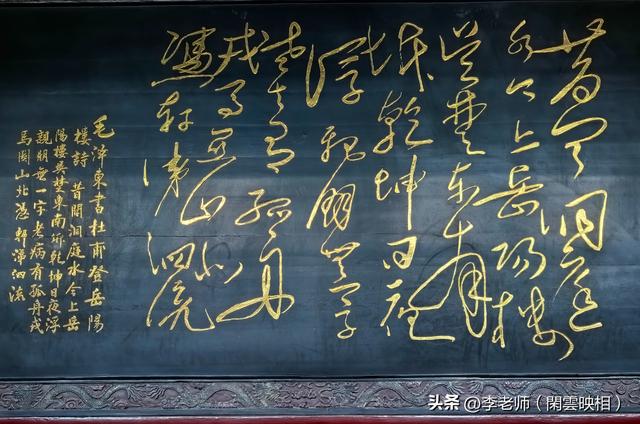 昔闻洞庭
水今上岳阳楼
吴楚东南
坼乾坤日夜
浮亲朋无一字
老去有孤舟
戎马关山北
凭轩涕泗流
毛澤東書杜甫登岳陽
樓詩 昔聞洞庭水今上岳
陽樓吳楚東南坼乾坤日夜浮
親朋無一字老病有孤舟戎
馬關山北憑軒涕泗流
头条 @李老师（閑雲映相）